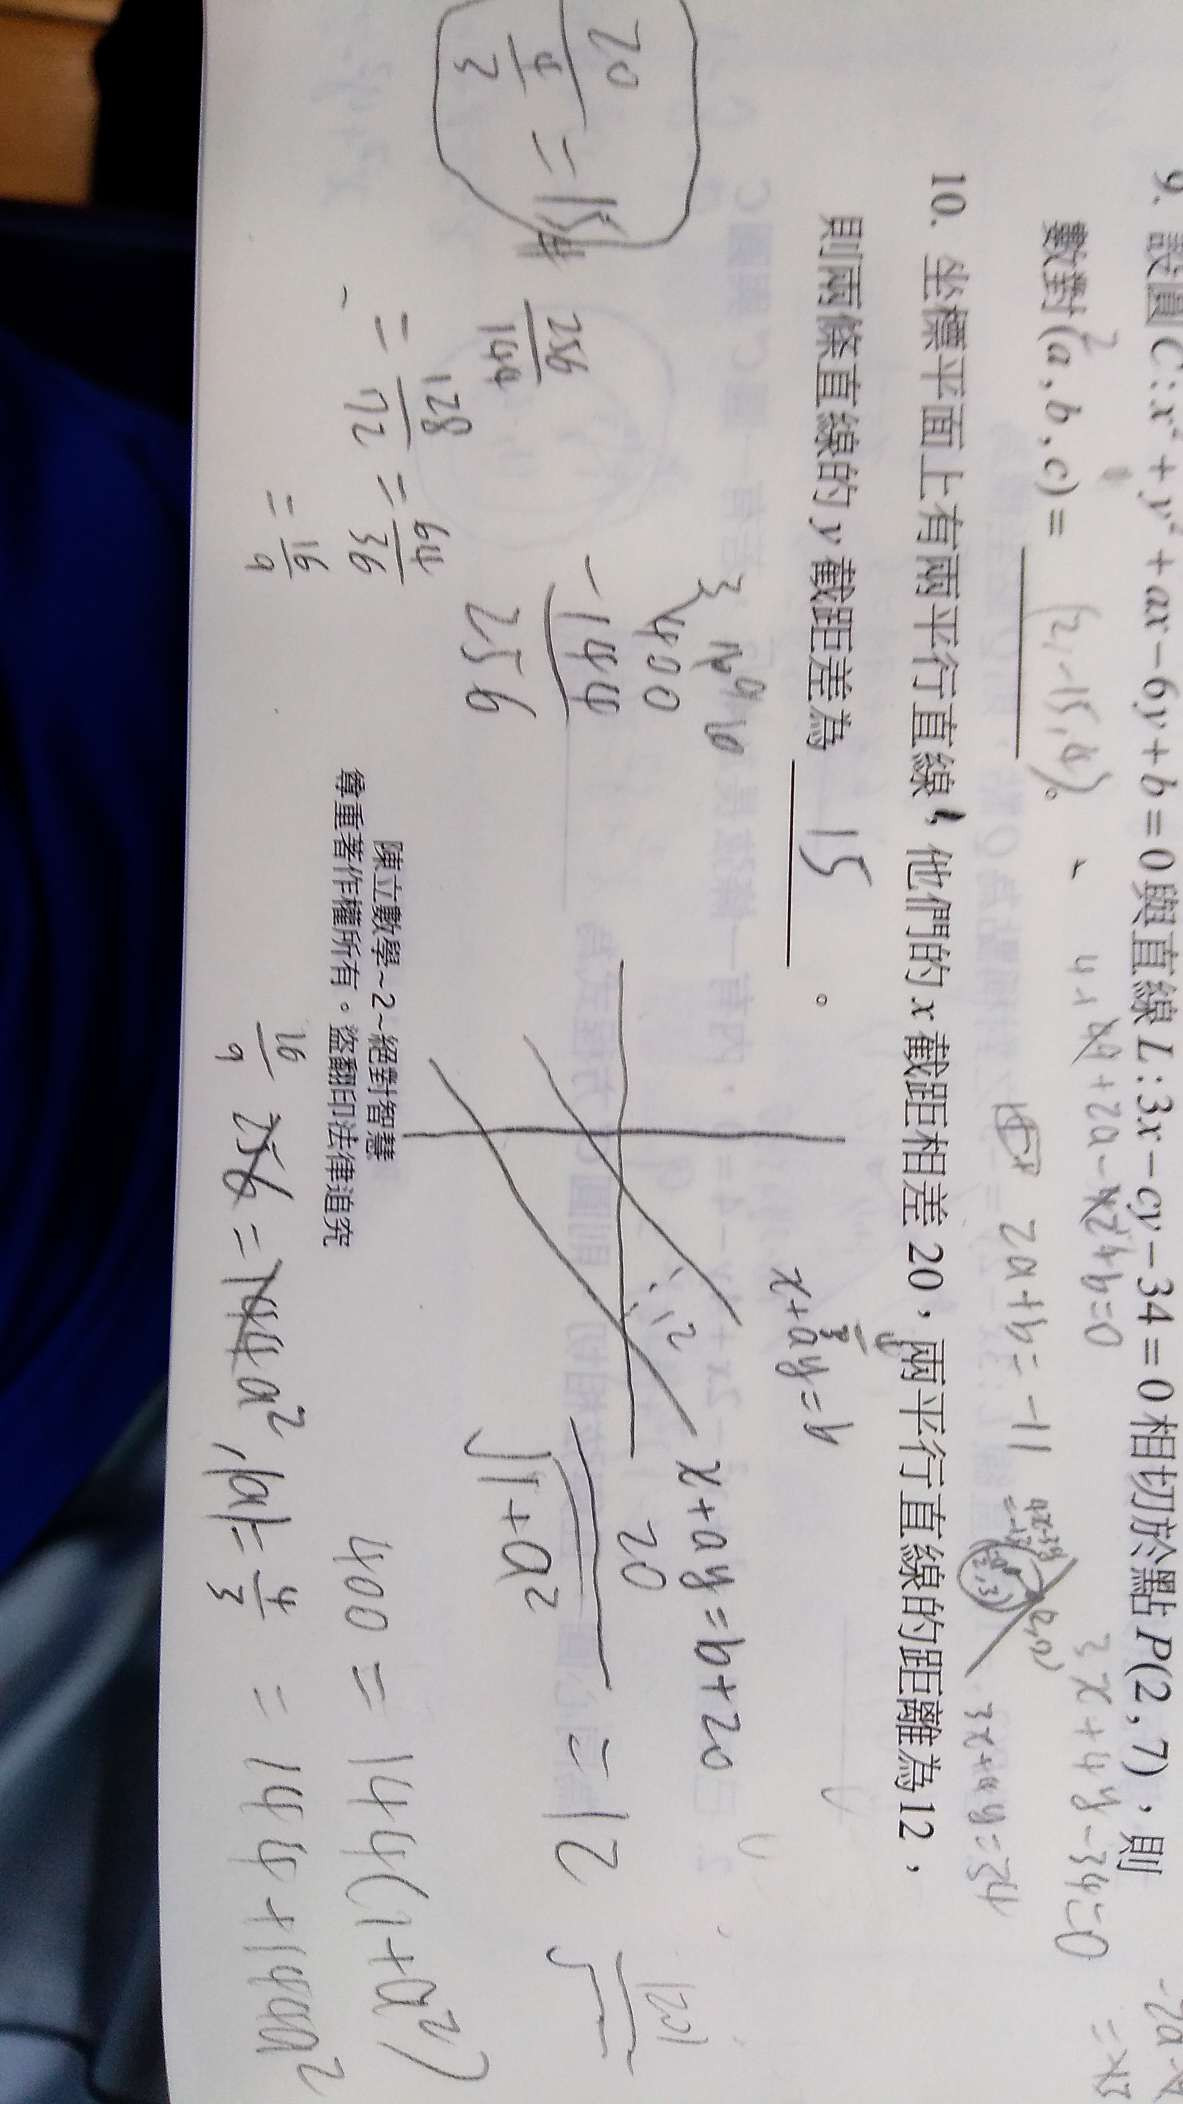 9. 設圓 C : x² + y² + ax − 6y + b = 0 與直線 L : 3x − cy − 34 = 0 相切於點 P(2 , 7),則
數對 (a , b , c) = (2, -15, -4)。
4+49+2a-42+b=0
2a+b=-11
3x+4y-34=0
3x+4y=34
10. 坐標平面上有兩平行直線,他們的 x 截距相差 20,兩平行直線的距離為 12,
則兩條直線的 y 截距差為 15 。
x+ay=b
x+ay=b+20
20
√1+a² = 12
400 = 144(1+a²)
= 144+144a²
400
-144
256
256 = 144a²
16
9
|a| = 4/3
256/144
= 128/72 = 64/36
= 16/9
20
4/3 = 15
12
陳立數學~2~絕對智慧
尊重著作權所有。盜翻印法律追究